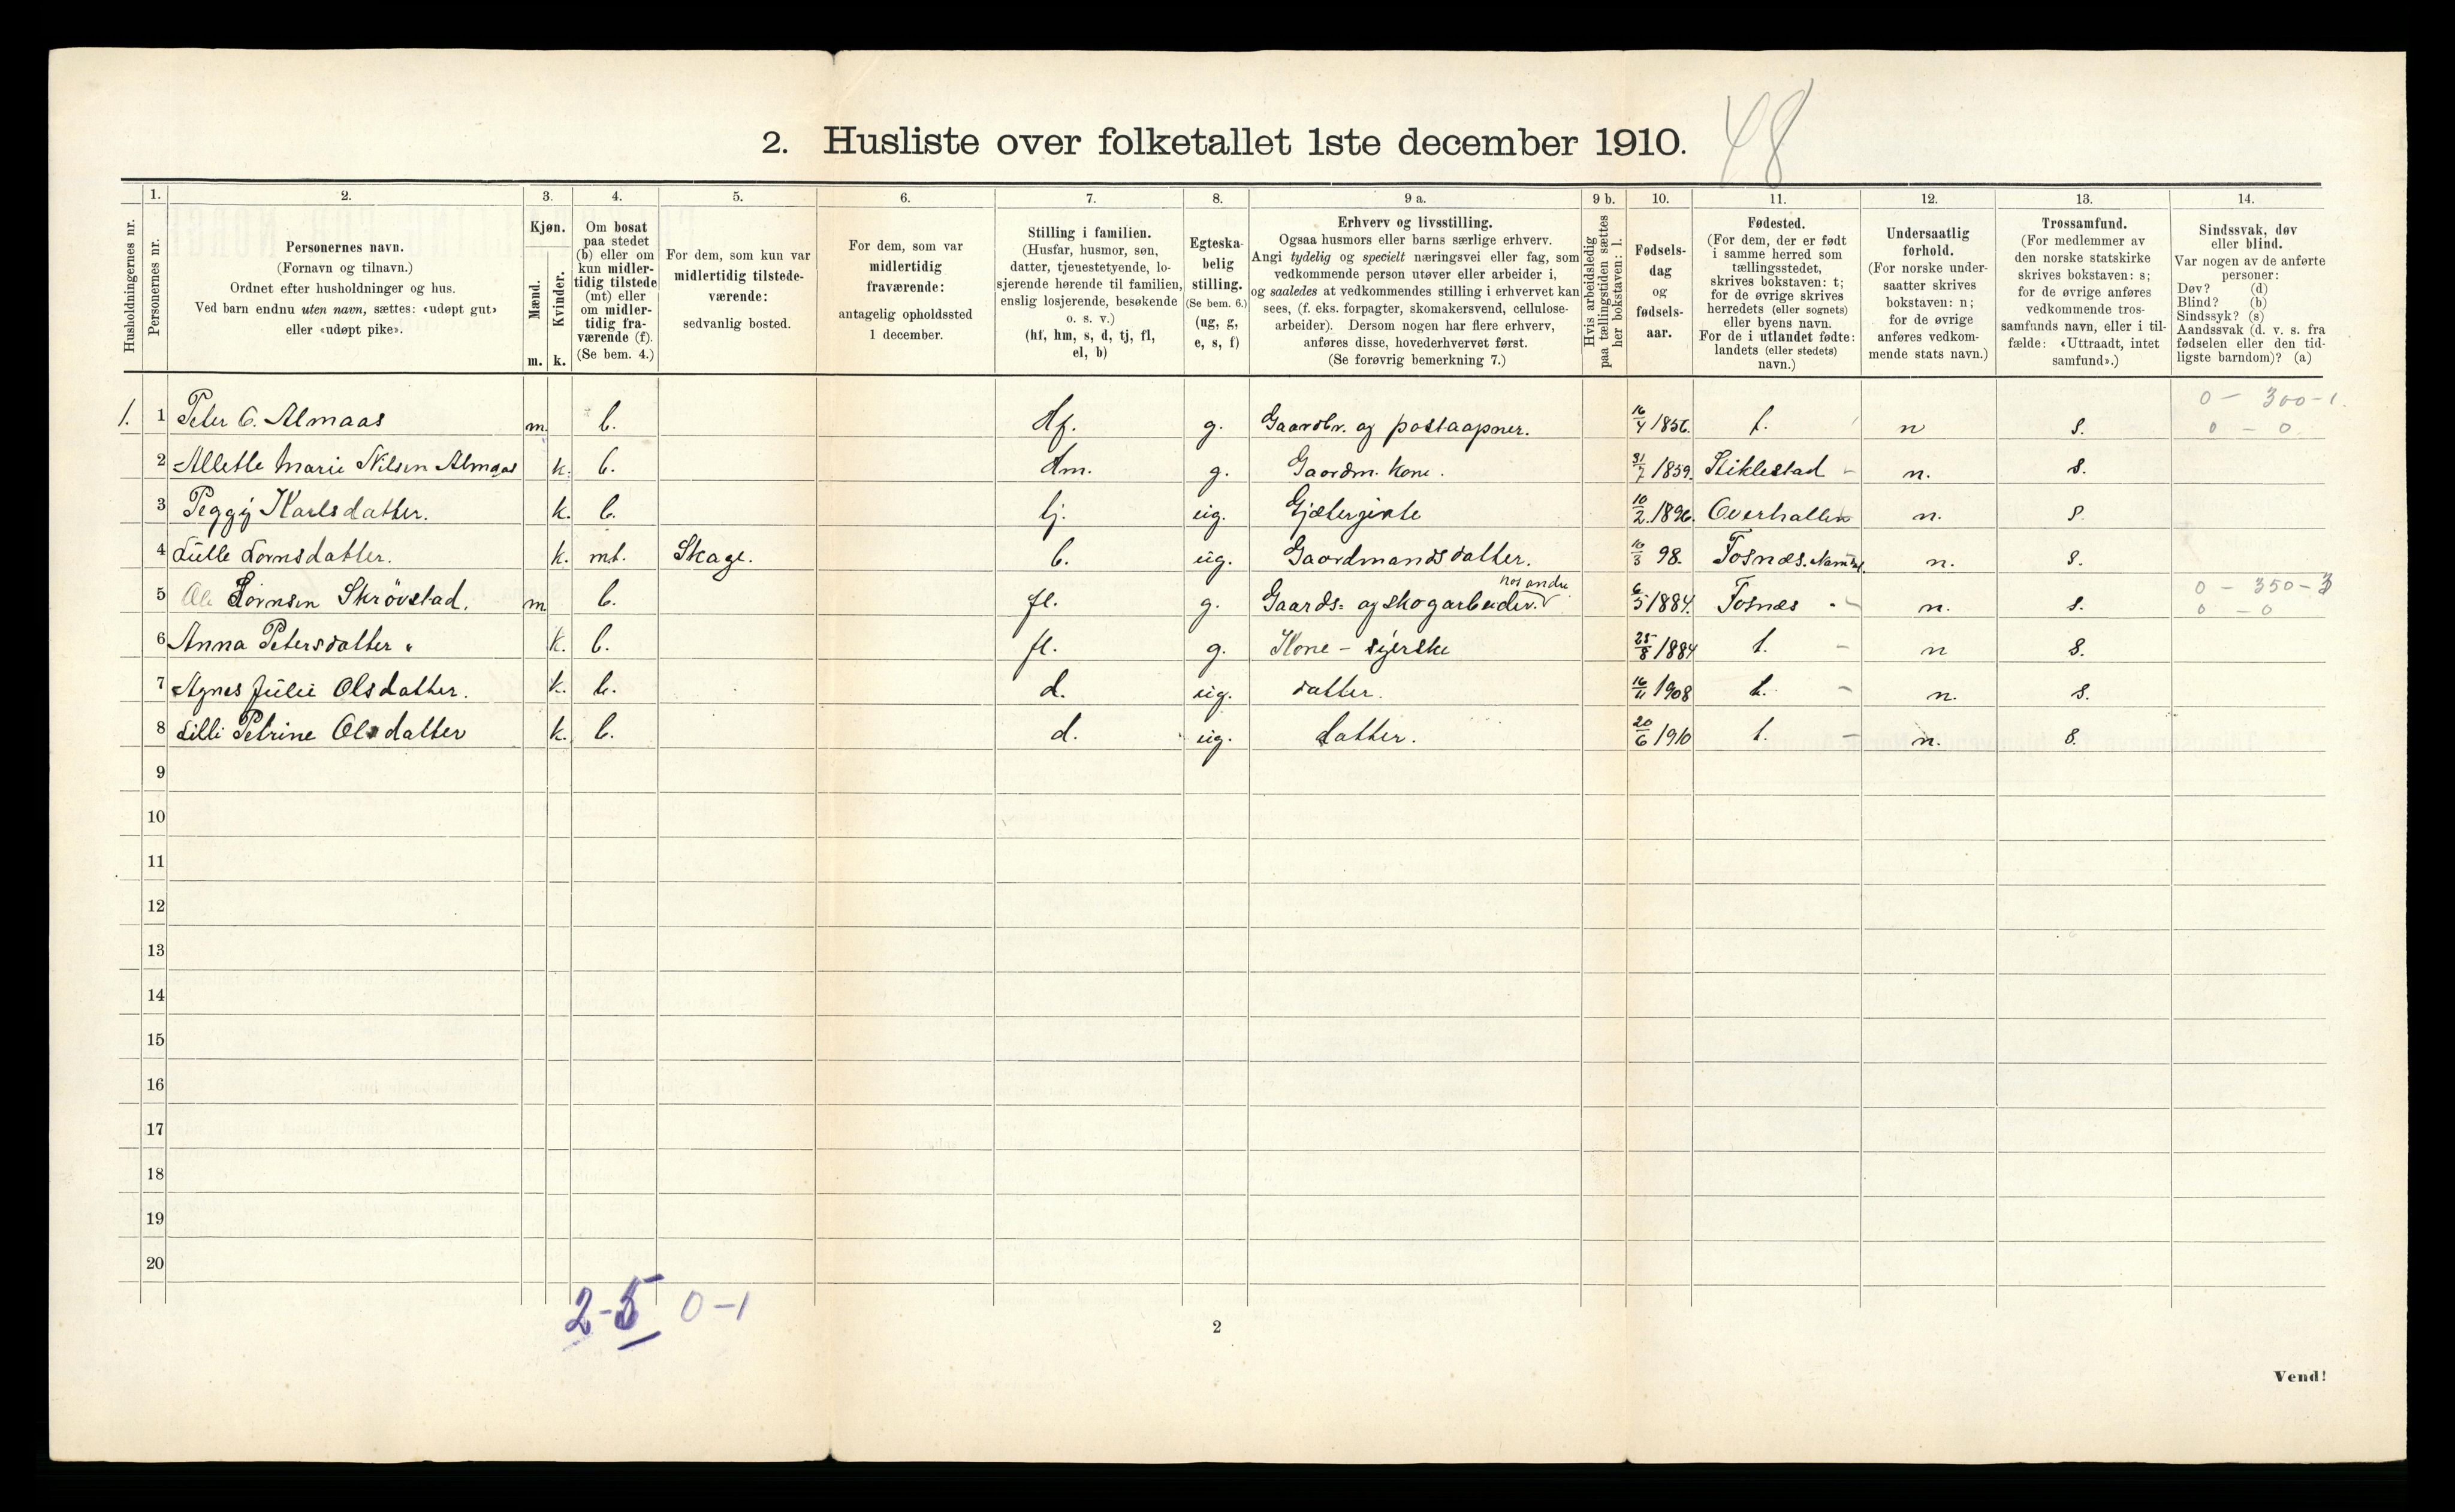 48
2. Husliste over folketallet 1ste december 1910.
Husholdningernes nr.
1. Personernes nr.
2. Personernes navn. (Fornavn og tilnavn.) Ordnet efter husholdninger og hus. Ved barn endnu uten navn, sættes: «udøpt gut» eller «udøpt pike».
3. Kjøn. Mænd. m. Kvinder. k.
4. Om bosat paa stedet (b) eller om kun midlertidig tilstede (mt) eller om midlertidig fraværende (f). (Se bem. 4.)
5. For dem, som kun var midlertidig tilstedeværende: sedvanlig bosted.
6. For dem, som var midlertidig fraværende: antagelig opholdssted 1 december.
7. Stilling i familien. (Husfar, husmor, søn, datter, tjenestetyende, losjerende hørende til familien, enslig losjerende, besøkende o. s. v.) (hf, hm, s, d, tj, fl, el, b)
8. Egteskabelig stilling. (Se bem. 6.) (ug, g, e, s, f)
9 a. Erhverv og livsstilling. Ogsaa husmors eller barns særlige erhverv. Angi tydelig og specielt næringsvei eller fag, som vedkommende person utøver eller arbeider i, og saaledes at vedkommendes stilling i erhvervet kan sees, (f. eks. forpagter, skomakersvend, cellulosearbeider). Dersom nogen har flere erhverv, anføres disse, hovederhvervet først. (Se forøvrig bemerkning 7.)
9 b. Hvis arbeidsledig paa tællingstiden sættes her bokstaven: l.
10. Fødselsdag og fødselsaar.
11. Fødested. (For dem, der er født i samme herred som tællingsstedet, skrives bokstaven: t; for de øvrige skrives herredets (eller sognets) eller byens navn. For de i utlandet fødte: landets (eller stedets) navn.)
12. Undersaatlig forhold. (For norske undersaatter skrives bokstaven: n; for de øvrige anføres vedkommende stats navn.)
13. Trossamfund. (For medlemmer av den norske statskirke skrives bokstaven: s; for de øvrige anføres vedkommende trossamfunds navn, eller i tilfælde: «Uttraadt, intet samfund».)
14. Sindssvak, døv eller blind. Var nogen av de anførte personer: Døv? (d) Blind? (b) Sindssyk? (s) Aandssvak (d. v. s. fra fødselen eller den tidligste barndom)? (a)
1. 1 Peter C. Almaas m. b. Hf. g. Gaardbr. og postaapner. 16/4 1856. t. n s. 0 - 300-1. 0 - 0
2 Allette Marie Nilsen Almaas k. b. Hm. g. Gaardm. kone. 31/7 1859. Stiklestad - n. s.
3 Peggy Karlsdatter. k. b. tj. ug. Gjæterjente 10/2 1896. Overhallen n. s.
4 Lulle Lornsdatter. k. mt. Skage. b. ug. Gaardmandsdatter. 10/3 98. Fosnæs. n. s.
5 Ole Lornsen Skrövstad. m b. fl. g. Gaards- og skogarbeider. hos andre 6/5 1884. Fosnæs - n. s. 0 - 350-3 0 - 0
6 Anna Petersdatter " k. b. fl. g. Kone - syerske 25/8 1884 t. - n s.
7 Agnes Julie Olsdatter. k. b. d. ug. datter. 16/11 1908 t. - n. s.
8 Lilli Petrine Olsdatter k. b. d. ug. datter. 20/6 1910 t. - n. s.
9
10
11
12
13
14
15
16
17
18
19
20
2-5 0-1
2
Vend!